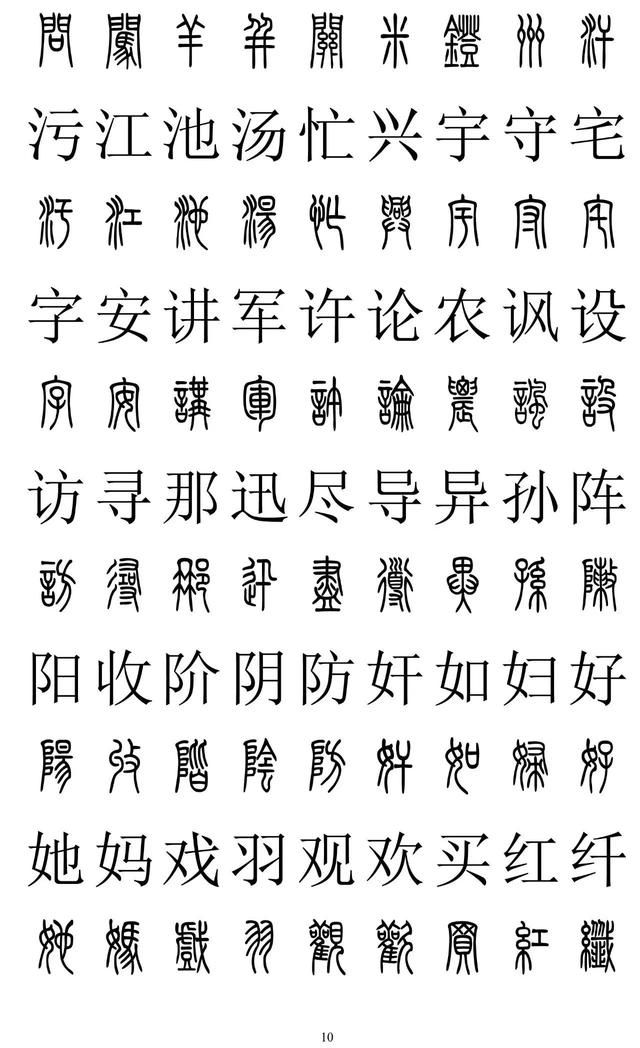 問闖羊并關米鐙州汗
污江池汤忙兴宇守宅
汙江池湯忙興宇守宅
字安讲军许论农讽设
字安講軍許論農諷設
访寻那迅尽导异孙阵
訪尋那迅盡導異孫陳
阳收阶阴防奸如妇好
陽收階陰防奸如婦好
她妈戏羽观欢买红纤
她媽戲羽觀歡買紅纖
10